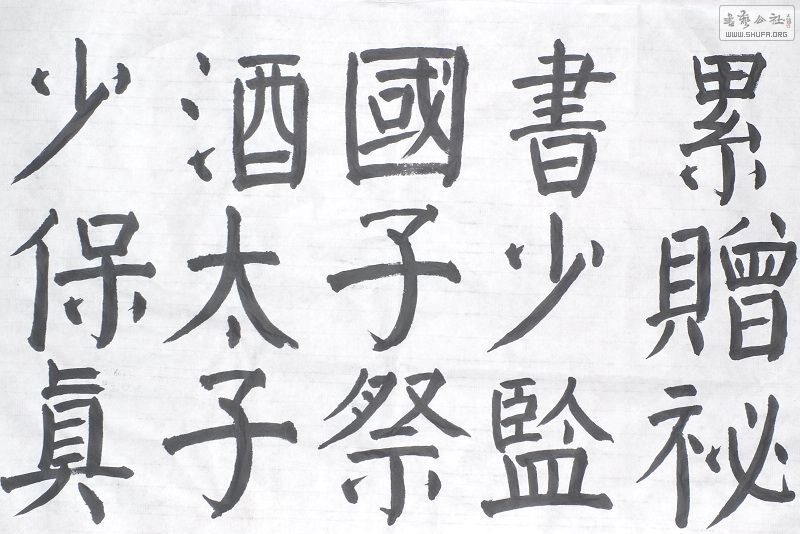 累贈祕
書少監
國子祭
酒太子
少保真
書藝公社
WWW.SHUFA.ORG